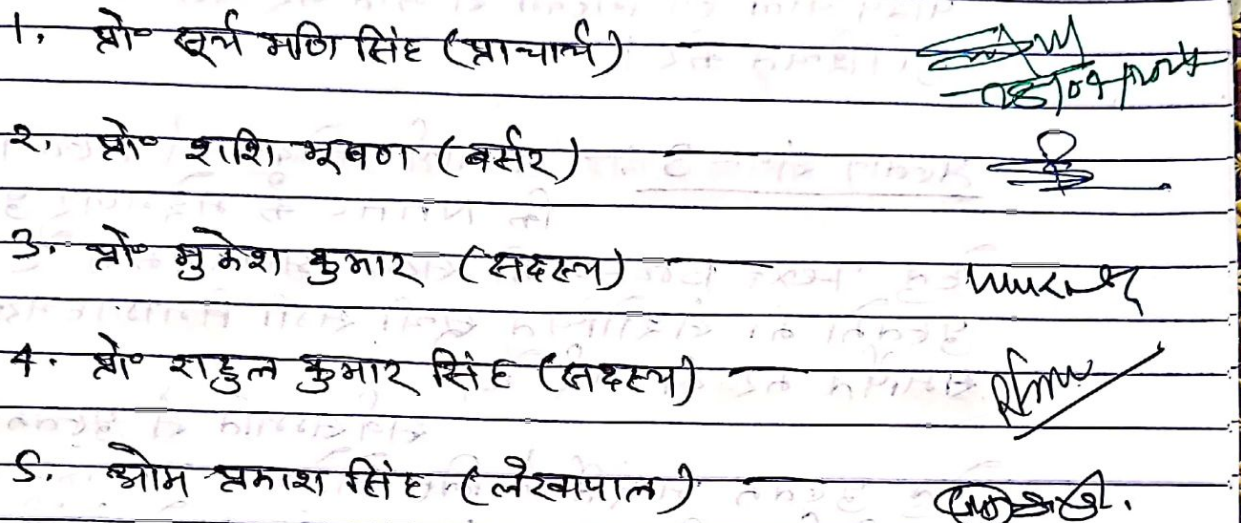 1. प्रो॰ सूर्य मणि सिंह (प्राचार्य) —
2. प्रो॰ शशि भूषण (बर्सर) —
3. प्रो॰ मुकेश कुमार (सदस्य) —
4. प्रो॰ राहुल कुमार सिंह (सदस्य) —
5. ओम प्रकाश सिंह (लेखापाल) —